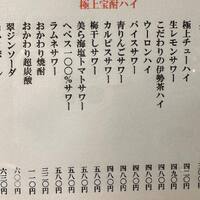 極上宝酎ハイ
極上チューハイ 四二〇
生レモンサワー 四五〇
こだわりの伊勢茶ハイ 四八〇
ウーロンハイ 四八〇
バイスサワー 四八〇
青りんごサワー 四八〇
カルピスサワー 四八〇
梅干しサワー 五八〇
美ら海塩トマトサワー 五八〇
ヘベス一〇〇%サワー 五八〇
ラムネサワー 五八〇
おかわり焼酎 三二〇
おかわり超炭酸 二一〇
翠ジンソーダ 六〇〇
六三〇